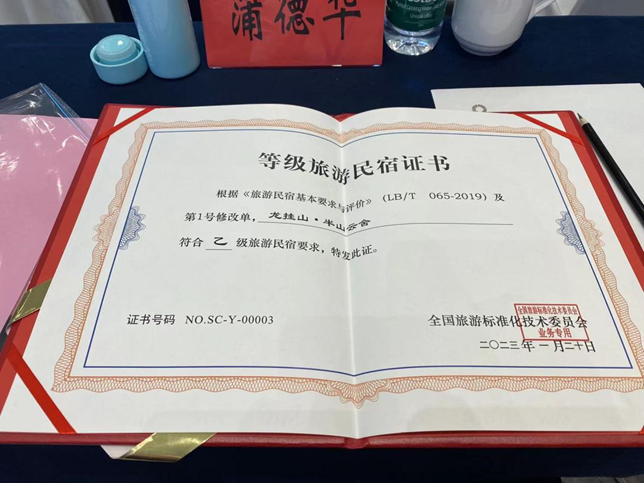 蒲德华
等级旅游民宿证书
根据《旅游民宿基本要求与评价》(LB/T 065-2019)及
第1号修改单,龙挂山·半山云舍
符合 乙 级旅游民宿要求,特发此证。
证书号码 NO.SC-Y-00003
全国旅游标准化技术委员会
全国旅游标准化技术委员会
业务专用
二〇二三年一月二十日